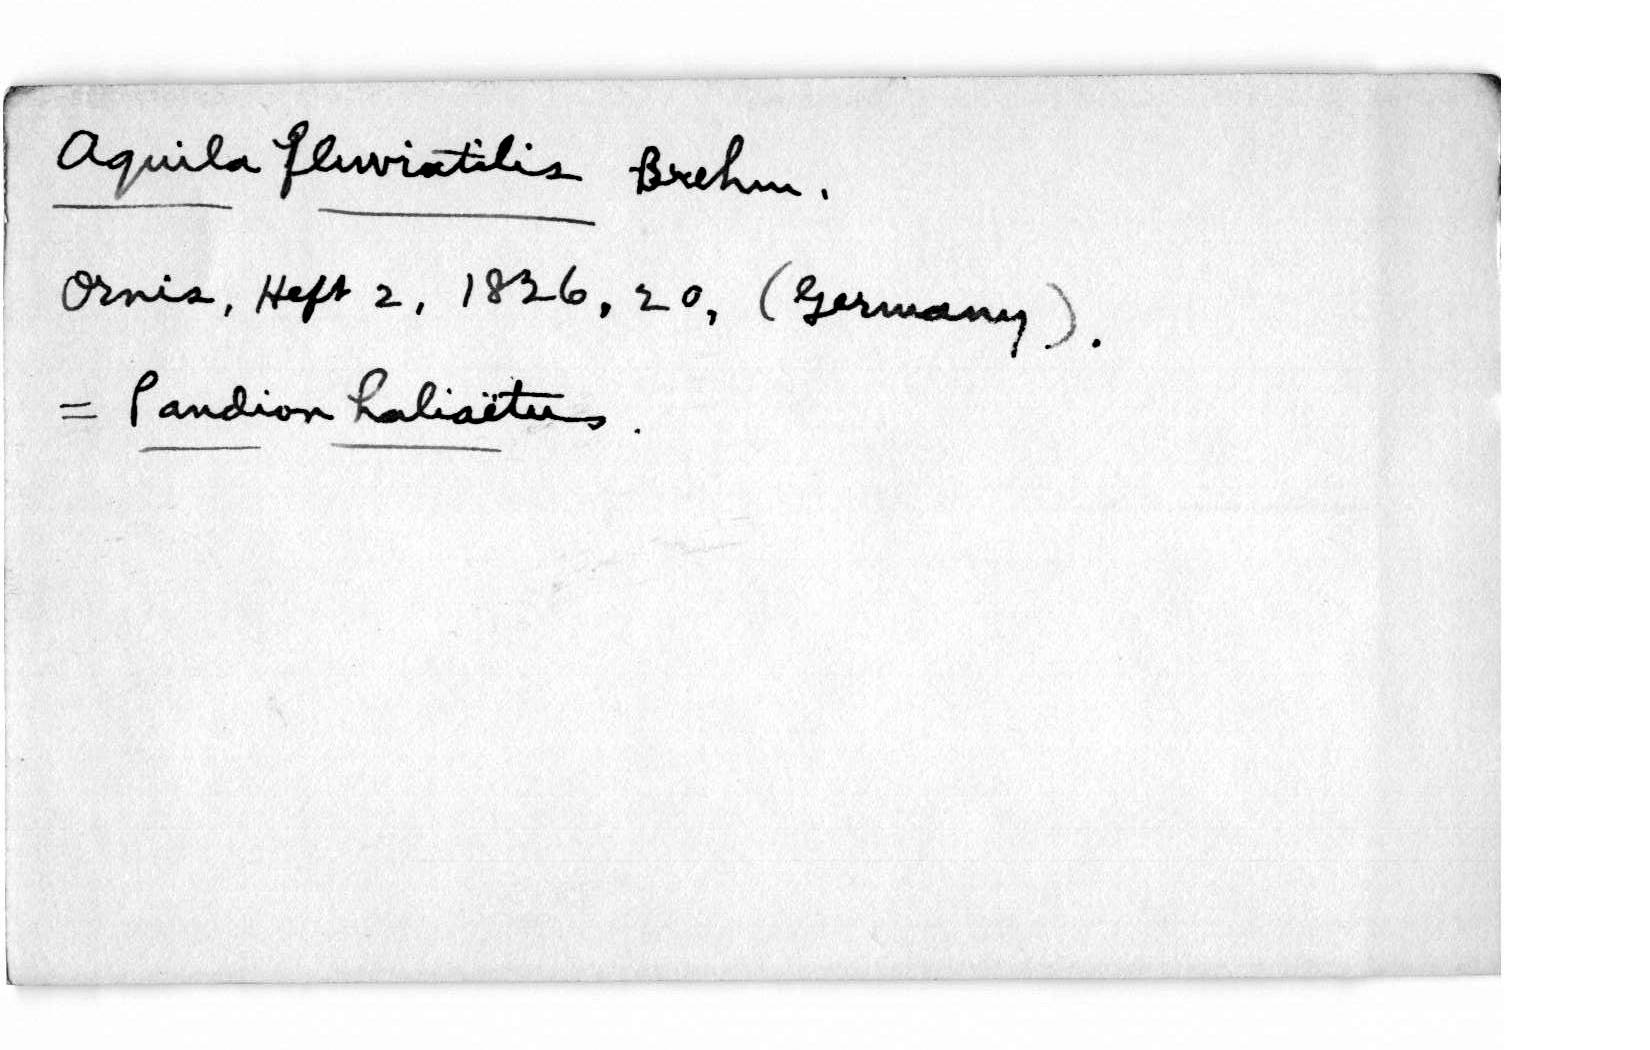 Aquila fluviatilis Brehm.
Ornis, Heft 2, 1826, 20, (Germany).
= Pandion haliaëtus.